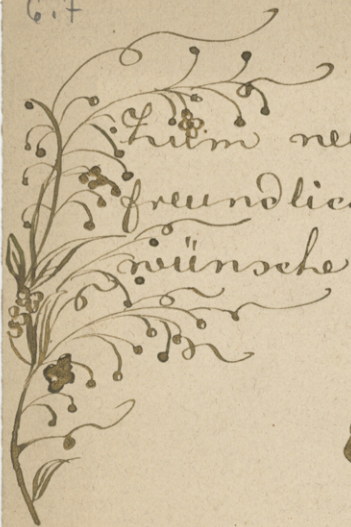 6.7
Zum ne
freundlic
wünsche